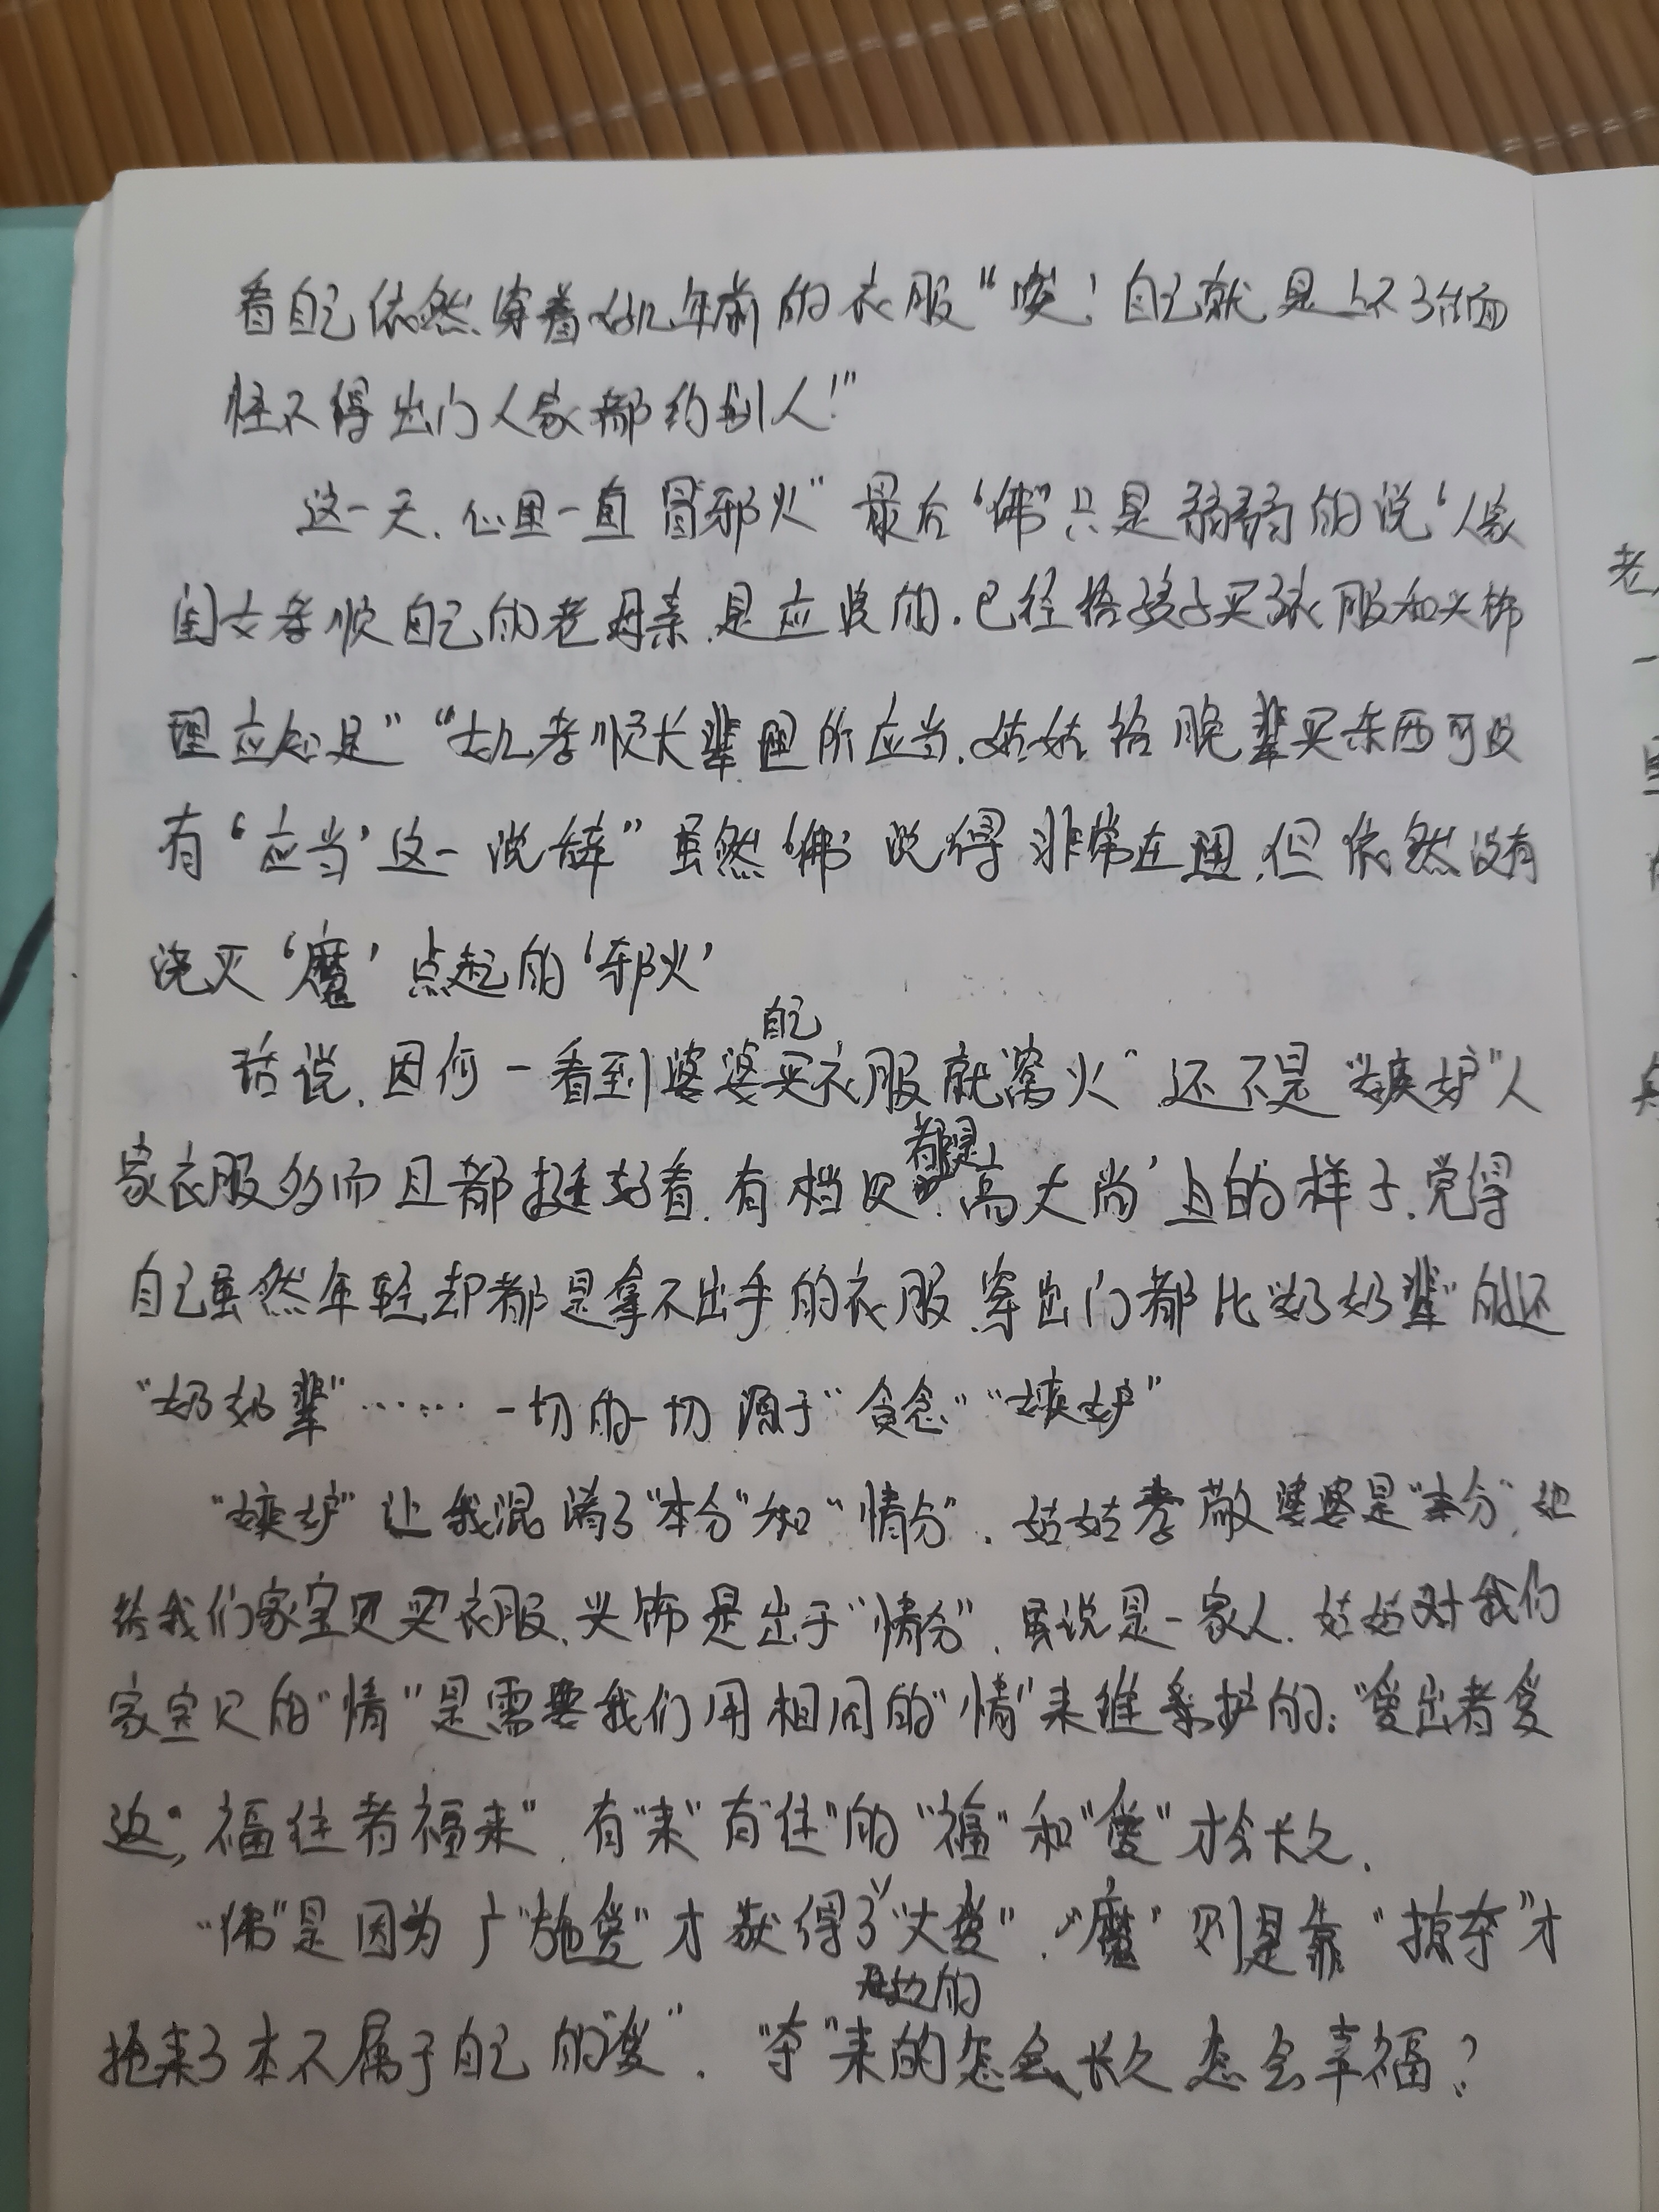 看自己依然穿着好几年前的衣服“唉！自己就是上不了台面
怪不得出门人家都约别人！”
这一天，心里一直冒“邪火”最后‘佛’只是弱弱的说‘人家
闺女孝顺自己的老母亲，是应该的。已经给孩子买了衣服和头饰
理应知足”“女儿孝顺长辈理所应当，姑姑给晚辈买东西可没
有‘应当’这一说辞”虽然‘佛’说得非常在理，但依然没有
浇灭‘魔’点起的‘邪火’
自己
话说，因何一看到婆婆买衣服就窝火“还不是“嫉妒”人
都是
家衣服多而且都挺好看，有档次，高大尚’上的样子，觉得
自己虽然年轻却都是拿不出手的衣服，穿出门都比“奶奶辈”的还
“奶奶辈”……一切的一切源于“贪念”“嫉妒”
“嫉妒”让我混淆了“本分”和“情分”，姑姑孝敬婆婆是“本分”，她
给我们家宝贝买衣服、头饰是出于“情分”，虽说是一家人，姑姑对我们
家宝贝的“情”是需要我们用相同的“情”来维系护的：“爱出者爱
返”，福往者福来”，有“来”有“往”的“福”和“爱”才会长久，
“佛”是因为广“施爱”才获得了“大爱”，“魔’则是靠“掠夺”才
抢来了本不属于自己的“爱”，“夺”来的怎会长久怎会幸福？
老
一